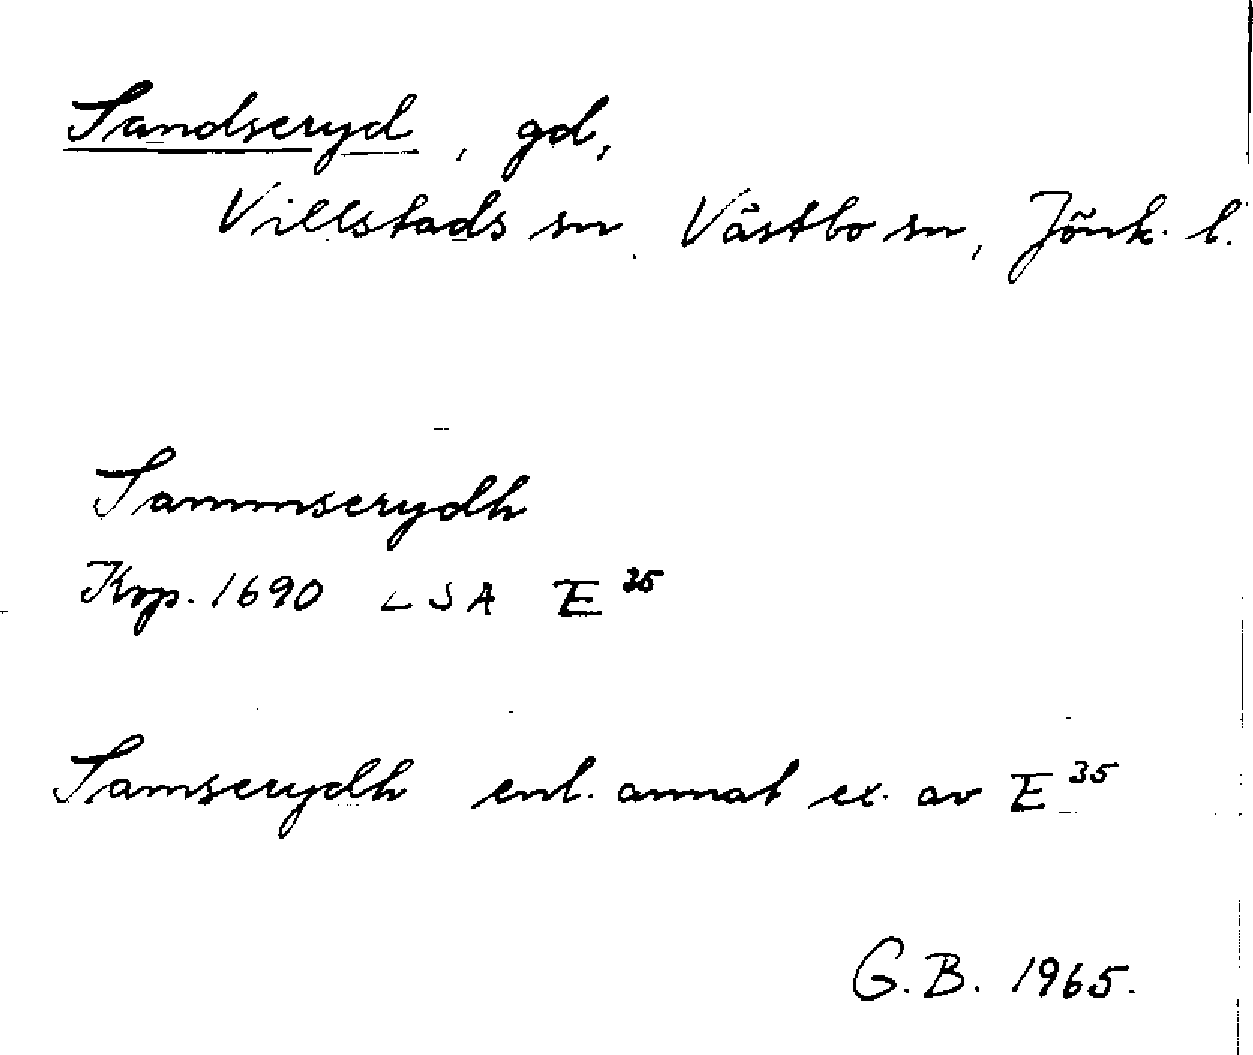 Sandseryd, gd,
Villstads sn. Västbo sn, Jönk. l.
Sammserydh
Kop. 1690 LSA E 35
Samserydh enl. annat ex. av E 35
G.B. 1965.